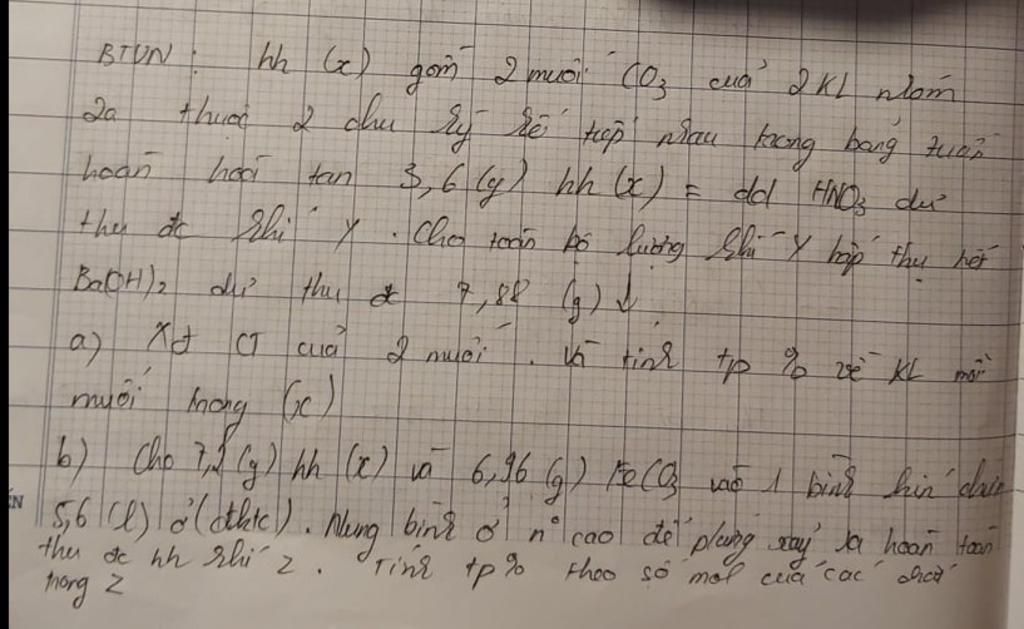 BTVN : hh (x) gồm 2 muối CO3 của 2 KL nhóm
2a thuộc 2 chu kỳ kế tiếp nhau trong bảng tuần
hoàn hoài tan 3,6 (g) hh (x) = dd HNO3 dư
thu đc khí Y . Cho toàn bộ lượng khí Y hấp thụ hết
Ba(OH)2 dư thu đc 7,88 (g) ↓
a) Xđ CT của 2 muối . Và tính tp % về KL mỗi
muối trong (x)
b) Cho 7,2 (g) hh (x) và 6,96 (g) FeCO3 vào 1 bình kín chứa
5,6 (l) ở (đktc). Nung bình ở n° cao để phảng xảy ra hoàn toàn
thu đc hh khí Z . Tính tp % theo số mol của các chất
trong Z